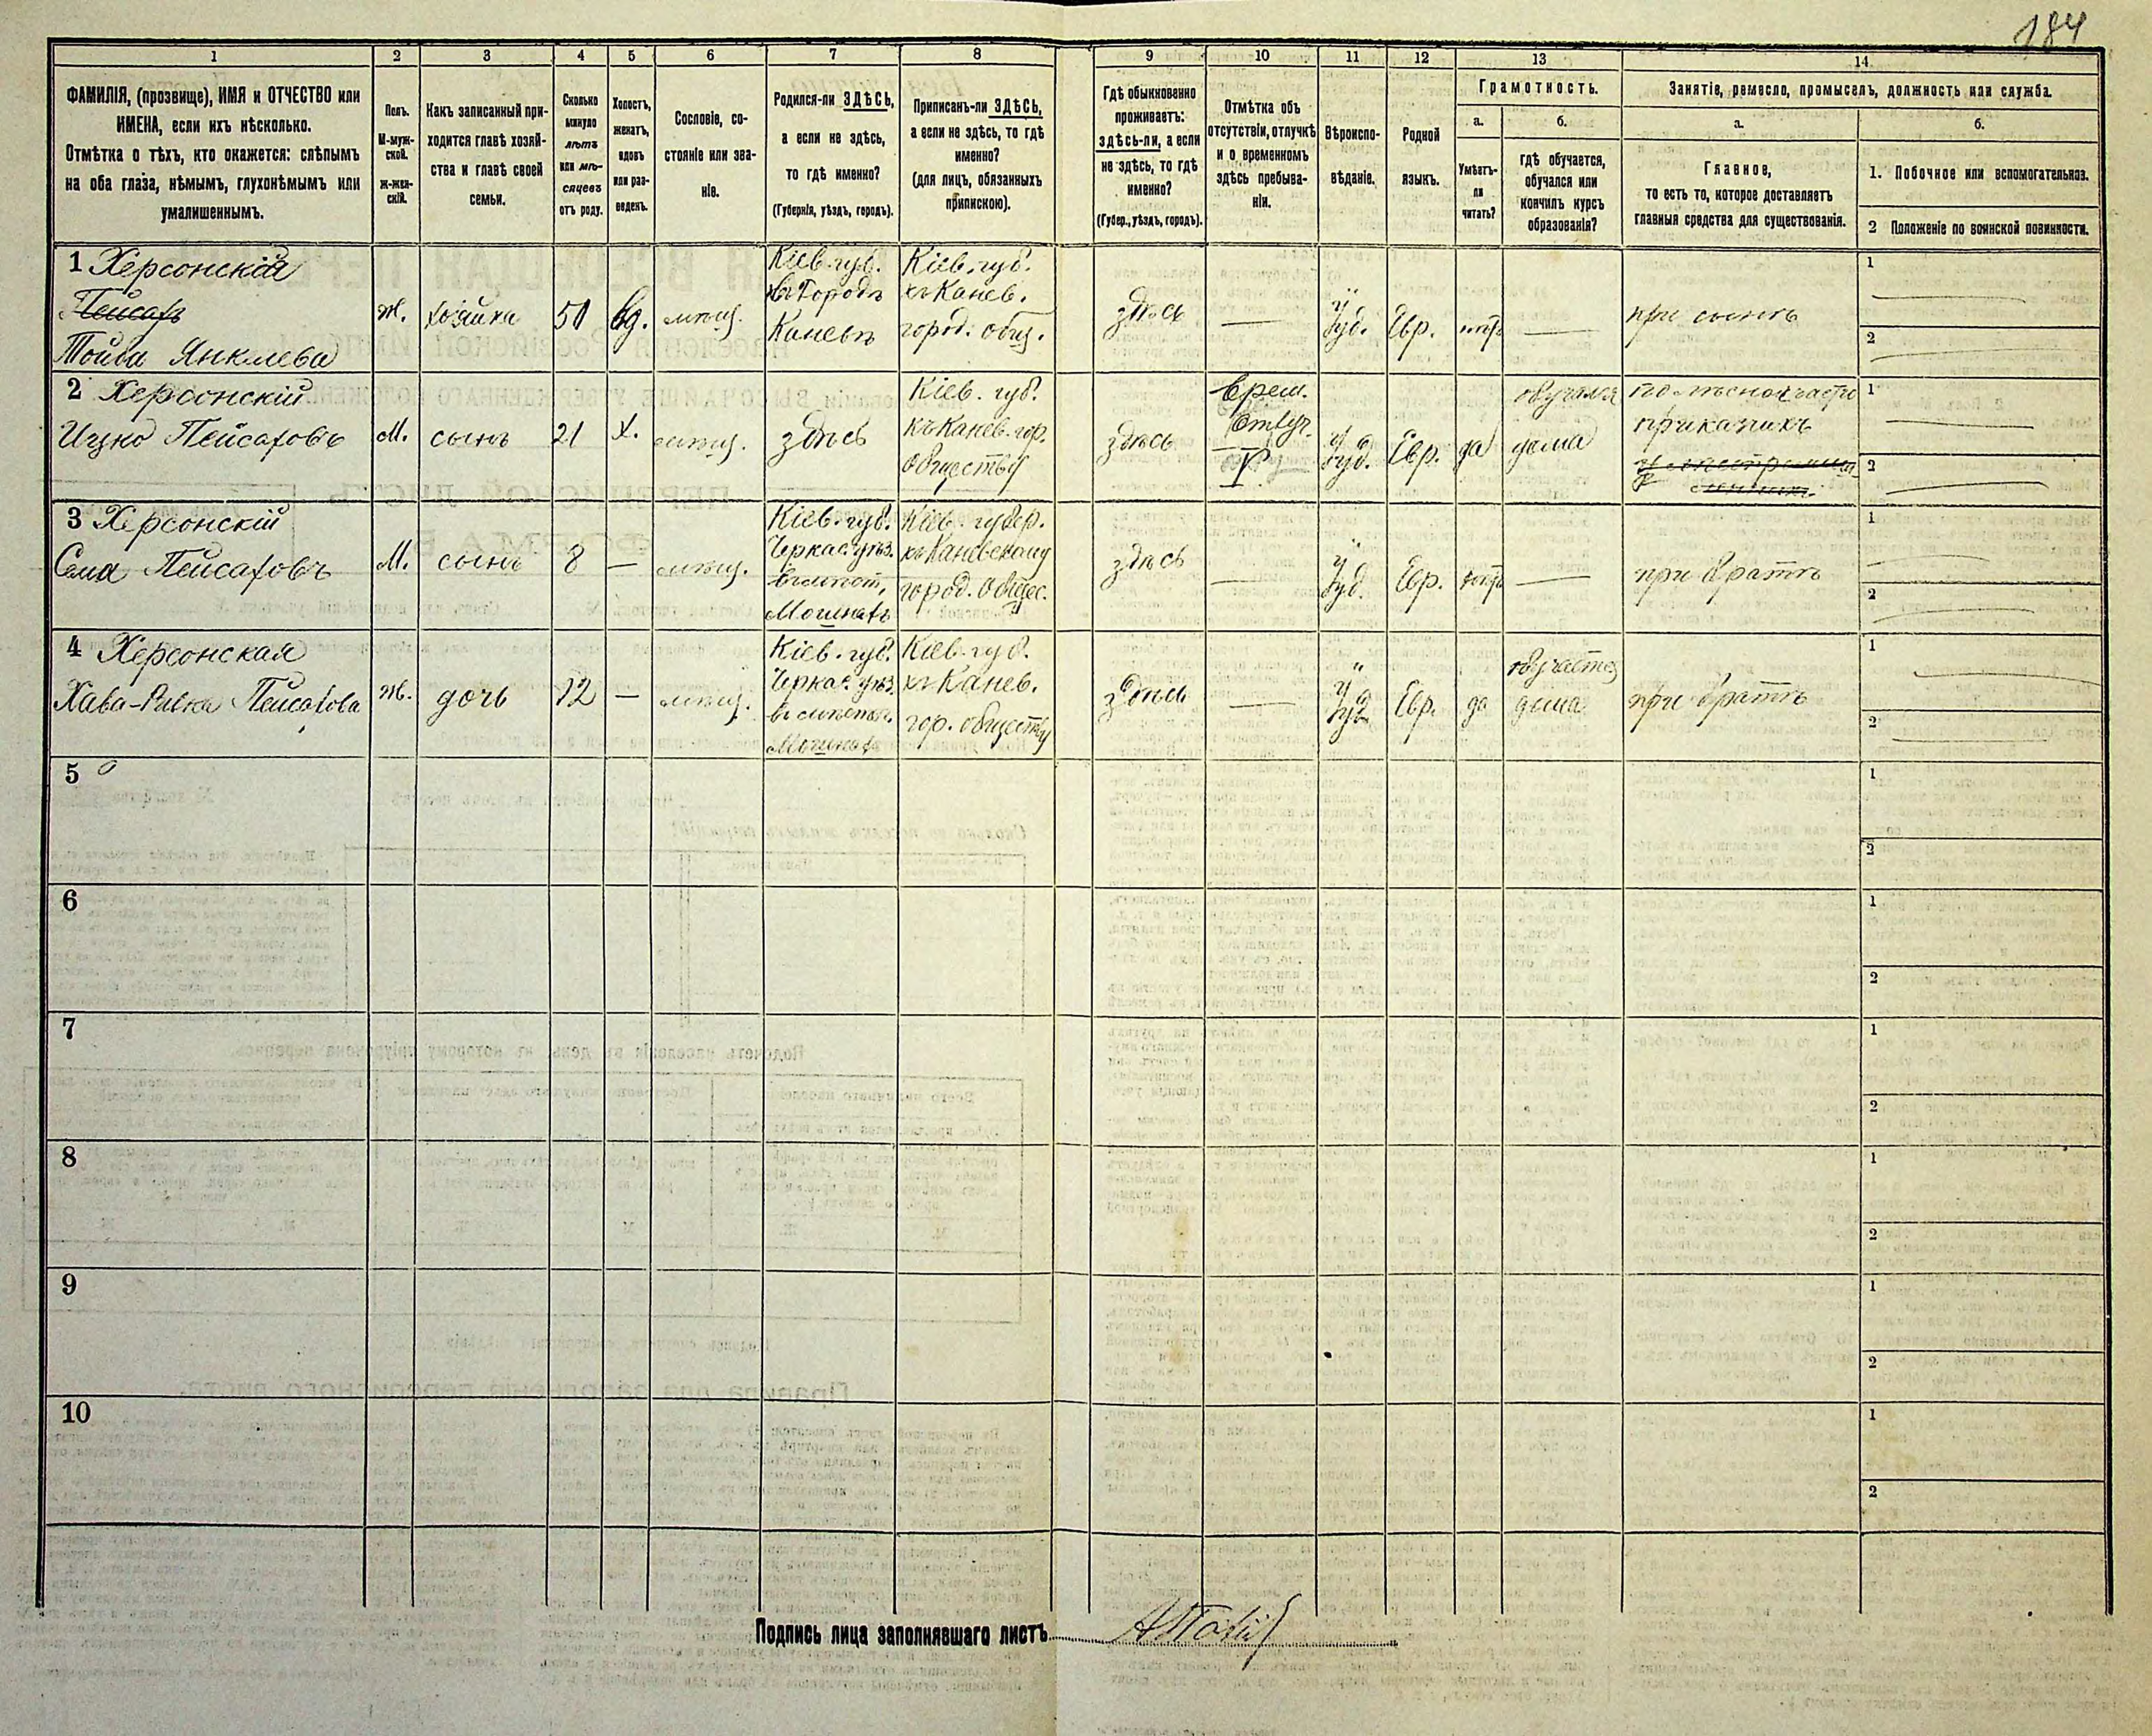 184
1
2
3
4
5
6
7
8
9
10
11
12
13
14
ФАМИЛІЯ, (прозвище), ИМЯ и ОТЧЕСТВО или
ИМЕНА, если ихъ нѣсколько.
Отмѣтка о тѣхъ, кто окажется: слѣпымъ
на оба глаза, нѣмымъ, глухонѣмымъ или
умалишеннымъ.
Полъ.
М-муж-
ской.
Ж-жен-
скій.
Какъ записанный при-
ходится главѣ хозяй-
ства и главѣ своей
семьи.
Сколько
минуло
лѣтъ
или мѣ-
сяцевъ
отъ роду.
Холостъ,
женатъ,
вдовъ
или раз-
веденъ.
Сословіе, со-
стояніе или зва-
ніе.
Родился-ли ЗДѢСЬ,
а если не здѣсь,
то гдѣ именно?
(Губернія, уѣздъ, городъ).
Приписанъ-ли ЗДѢСЬ,
а если не здѣсь, то гдѣ
именно?
(для лицъ, обязанныхъ
припискою).
Гдѣ обыкновенно
проживаетъ:
здѣсь-ли, а если
не здѣсь, то гдѣ
именно?
(Губер., уѣздъ, городъ).
Отмѣтка объ
отсутствіи, отлучкѣ
и о временномъ
здѣсь пребыва-
ніи.
Вѣроиспо-
вѣданіе.
Родной
языкъ.
Грамотность.
а.
Умѣетъ-
ли
читать?
б.
гдѣ обучается,
обучался или
кончилъ курсъ
образованія?
Занятіе, ремесло, промыселъ, должность или служба.
а.
Главное,
то есть то, которое доставляетъ
главныя средства для существованія.
б.
1. Побочное или вспомогательное.
2 Положеніе по воинской повинности.
1 Херсонская
Пейсахъ
Тойба Янкелева
ж.
хозяйка
50
вд.
мѣщ.
Кіев. губ.
въ городѣ
Каневѣ
Кіев. губ.
къ Канев.
город. общ.
здѣсь
—
Іуд.
Евр.
нѣтъ
—
при сынѣ
1 —
2 —
2 Херсонскій
Ицко Пейсаховъ
М.
сынъ
21
х.
мѣщ.
здѣсь
Кіев. губ.
къ Канев. гор.
обществу
здѣсь
Врем.
Отлуч.
Іуд.
Евр.
да
обучался
дома
по лѣсной части
приказчикъ
1 —
2 —
3 Херсонскій
Сема Пейсаховъ
М.
сынъ
8
—
мѣщ.
Кіев. губ.
Черкас. уѣз.
въ мѣст.
Мошнахъ
Кіев. губер.
къ Каневскому
город. общес.
здѣсь
—
Іуд.
Евр.
нѣтъ
—
при братѣ
1 —
2 —
4 Херсонская
Хава-Ривка Пейсахова
ж.
дочь
12
—
мѣщ.
Кіев. губ.
Черкас. уѣз.
въ мѣстеч.
Мошнах
Кіев. губ.
къ Канев.
гор. обществу
здѣсь
—
Іуд.
Евр.
да
обучается
дома
при братѣ
1 —
2 —
5
1
2
6
1
2
7
1
2
8
1
2
9
1
2
10
1
2
Подпись лица заполнявшаго листъ